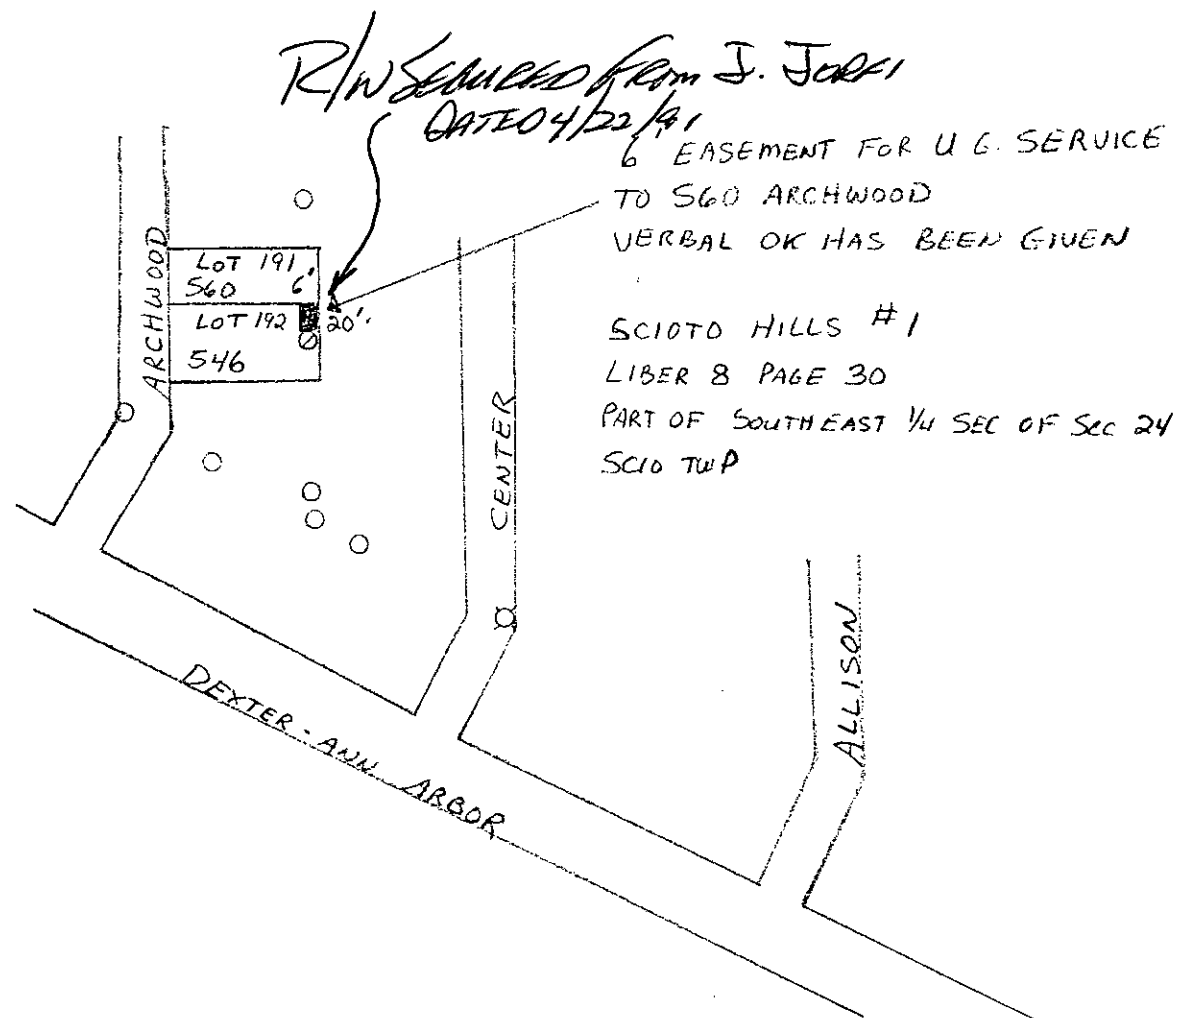 R/W SECURED FROM J.
DATED 4/22/81
6' EASEMENT FOR U G. SERVICE
TO 560 ARCHWOOD
VERBAL OK HAS BEEN GIVEN
SCIOTO HILLS #1
LIBER 8 PAGE 30
PART OF SOUTHEAST 1/4 SEC OF SEC 24
SCIO TWP
ARCHWOOD
LOT 191
560 6'
LOT 192 20'
546
CENTER
ALLISON
DEXTER - ANN ARBOR